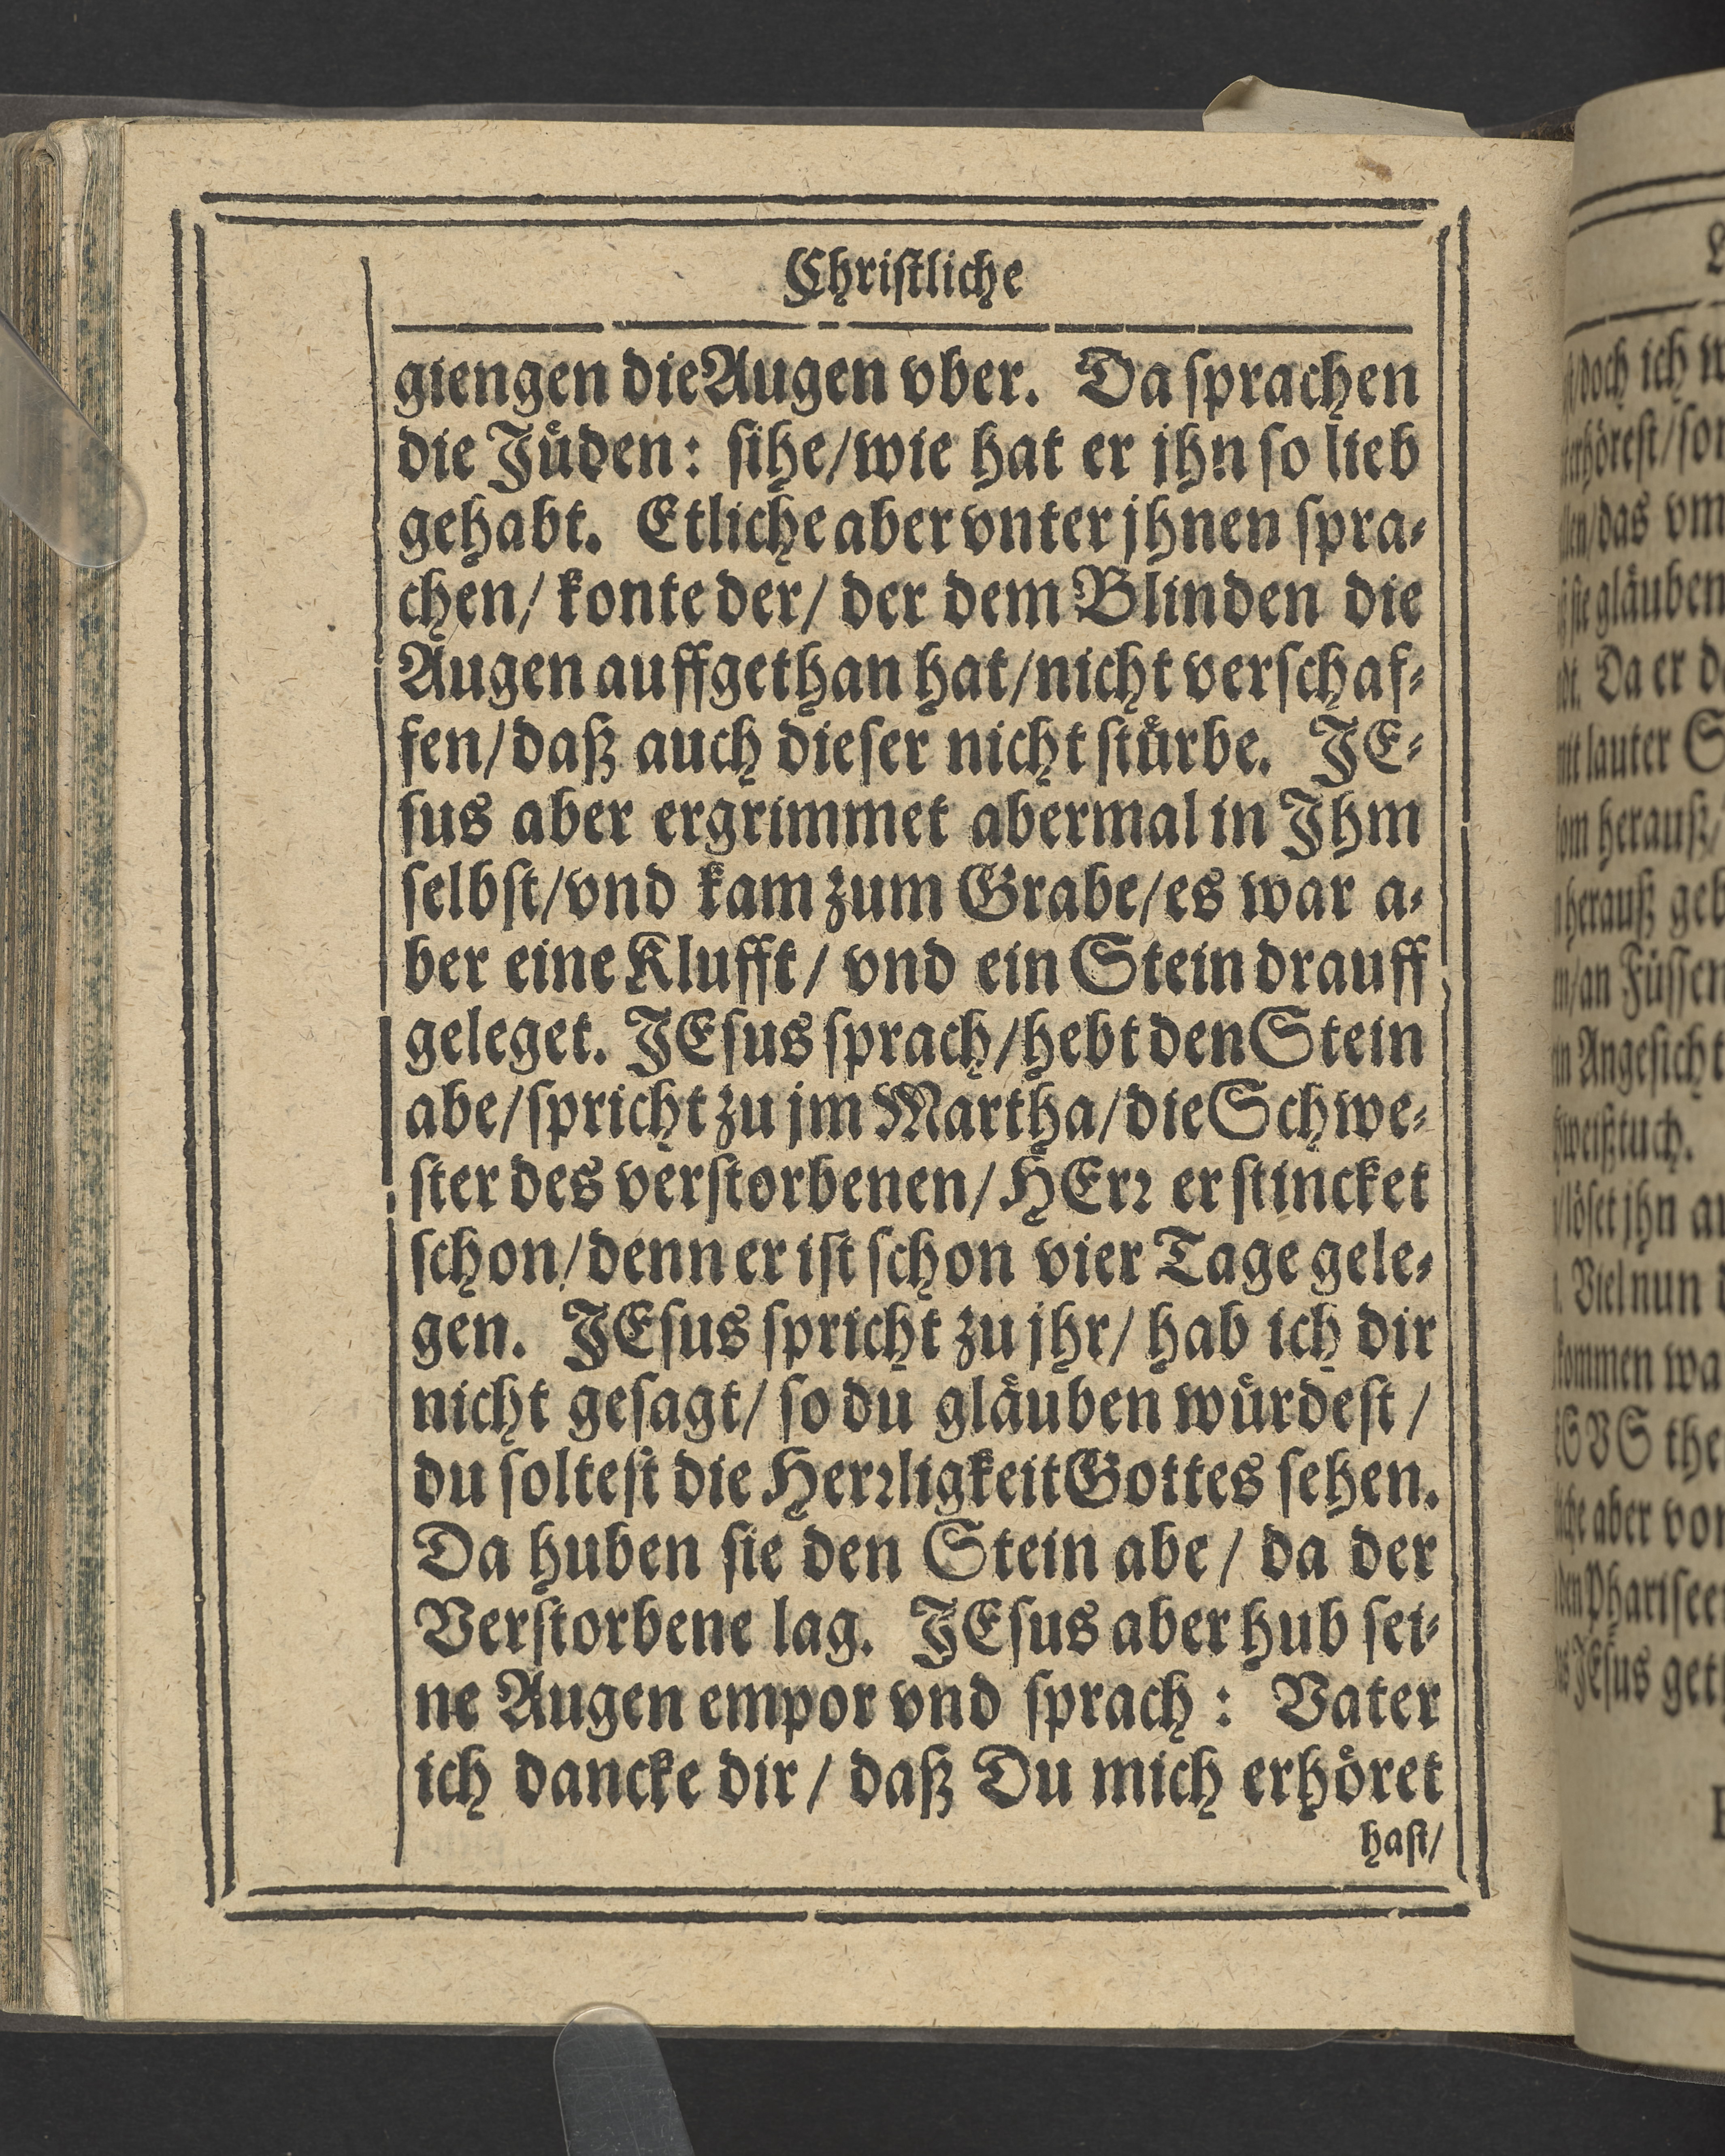 Chriſtliche
giengen die Augen vber. Da ſprachen
die Juͤden: ſihe/wie hat er jhn ſo lieb
gehabt. Etliche aber vnter jhnen ſpra⸗
chen/ konte der/ der dem Blinden die
Augen auffgethan hat/nicht verſchaf⸗
fen/daß auch dieſer nicht ſtuͤrbe. JE⸗
ſus aber ergrimmet abermal in Jhm
ſelbſt/vnd kam zum Grabe/es war a⸗
ber eine Klufft/ vnd ein Stein drauff
geleget. JEſus ſprach/hebt den Stein
abe/ſpricht zu jm Martha/die Schwe⸗
ſter des verſtorbenen/HErꝛ er ſtincket
ſchon/denn er iſt ſchon vier Tage gele⸗
gen. JEſus ſpricht zu jhr/ hab ich dir
nicht geſagt/ ſo du glaͤuben wuͤrdeſt/
du ſolteſt die Herꝛligkeit Gottes ſehen.
Da huben ſie den Stein abe/ da der
Verſtorbene lag. JEſus aber hub ſei⸗
ne Augen empor vnd ſprach: Vater
ich dancke dir/ daß Du mich erhoͤret
haſt/
doch ich
das vm
glaͤuben
Da er
lauter
herauß/
herauß
an Fuͤſſen
Angeſicht
jhn
Viel nun
aber
Phariſeer
JEſus